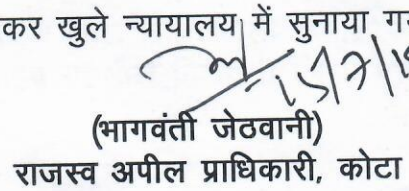 कर खुले न्यायालय में सुनाया
15/7/1
(भागवंती जेठवानी)
राजस्व अपील प्राधिकारी, कोटा